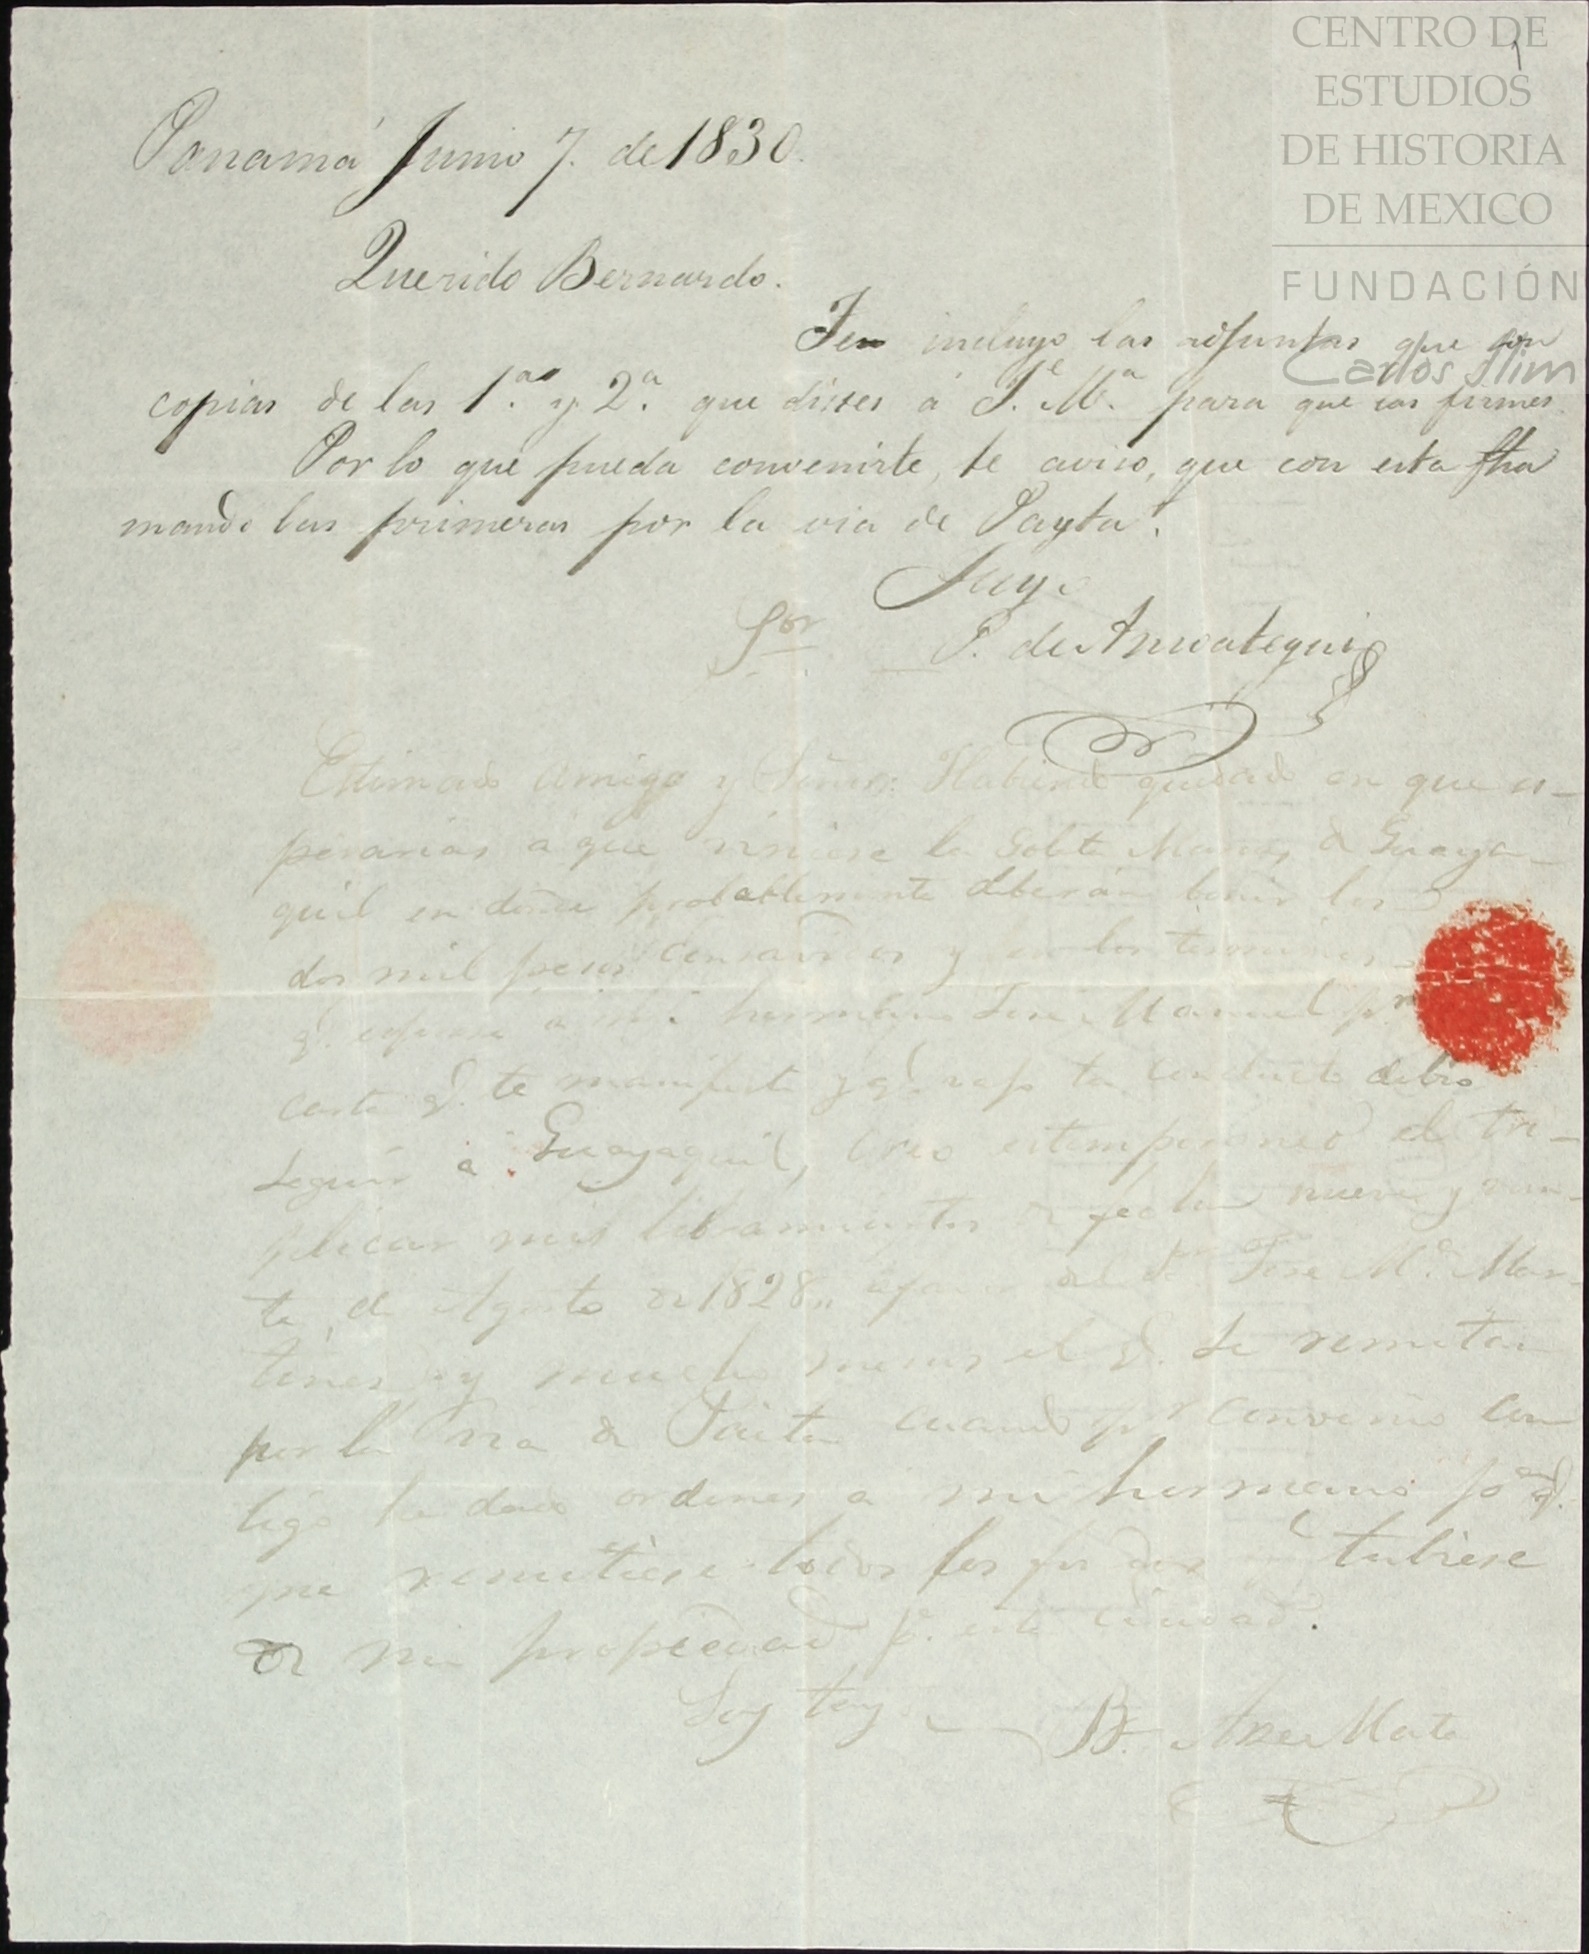 CENTRO DE
ESTUDIOS
DE HISTORIA
DE MEXICO
FUNDACIÓN
Carlos Slim
Panamá Junio 7. de 1830.
Querido Bernardo.
incluyo las adjuntas que son
copias de las 1.as y 2.a que distes á J.e M.a para que las firmes.
Por lo que pueda convenirte, te aviso, que con esta fha
mando las primeras por la via de Payta.
Suyo
P. de Amoategui
Sor
Estimado amigo y Señor: Habiendo quedado en que es-
perarias a que viniese la Golta de Guaya-
quil en donde probablemente deberán benir los
dos mil pesos y en los terminos
q.e espuse a mi hermano José Manuel pr
carta q.e te manifesté y q.e bajo tu conducto debio
seguir a Guayaquil, creo estemporaneo el tri-
plicar mis libramientos de fecha nueve y vein-
te de Agosto de 1828,, a favor del Sr José M.a Mar-
tines y mucho menos el q.e se remitan
por la via de Paita cuando pr convenio con
tigo he dado ordenes a mi hermano pa q.e
me remitiese todos los fondos tubiese
de mi propiedad pa esta ciudad.
Soy tuyo B. Arze Mata